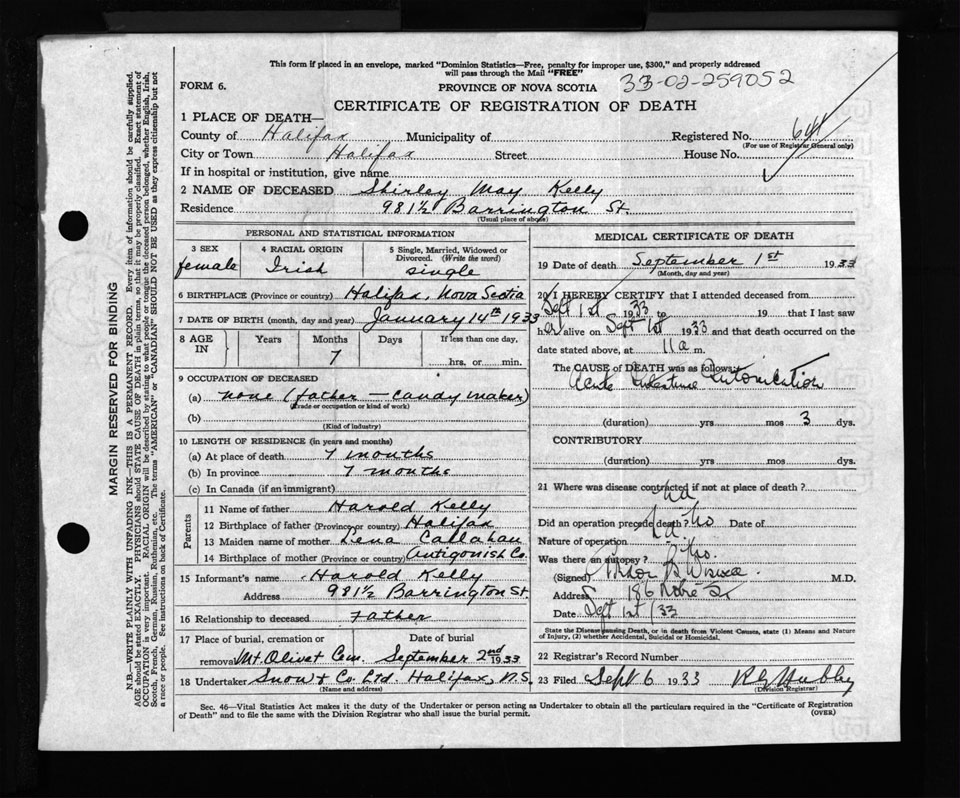 This form if placed in an envelope, marked "Dominion Statistics—Free, penalty for improper use, $300," and properly addressed
will pass through the Mail "FREE"
FORM 6. PROVINCE OF NOVA SCOTIA 33-02-259052
CERTIFICATE OF REGISTRATION OF DEATH
1 PLACE OF DEATH—
County of Halifax Municipality of Registered No.
(For use of Registrar General only)
City or Town Halifax Street House No.
If in hospital or institution, give name
2 NAME OF DECEASED Shirley May Kelly
Residence 981½ Barrington St.
(Usual place of abode)
PERSONAL AND STATISTICAL INFORMATION
3 SEX 4 RACIAL ORIGIN 5 Single, Married, Widowed or
Divorced. (Write the word)
female Irish single
6 BIRTHPLACE (Province or country) Halifax, Nova Scotia
7 DATE OF BIRTH (month, day and year) January 14th 1933
8 AGE IN Years Months Days If less than one day,
7 hrs. or min.
9 OCCUPATION OF DECEASED
(a) none (father — candy maker)
(Trade or occupation or kind of work)
(b)
(Kind of industry)
10 LENGTH OF RESIDENCE (in years and months)
(a) At place of death 7 months
(b) In province 7 months
(c) In Canada (if an immigrant)
Parents
11 Name of father Harold Kelly
12 Birthplace of father (Province or country) Halifax
13 Maiden name of mother Lena Callahan
14 Birthplace of mother (Province or country) Antigonish Co.
15 Informant's name Harold Kelly
Address 981½ Barrington St.
16 Relationship to deceased Father
17 Place of burial, cremation or Date of burial
removal Mt. Olivet Cem. September 2nd 1933
18 Undertaker Snow & Co. Ltd. Halifax, N.S.
(Name and address)
MEDICAL CERTIFICATE OF DEATH
19 Date of death September 1st 1933
(Month, day and year)
20 I HEREBY CERTIFY that I attended deceased from
Sept 1st 1933 to 19 that I last saw
her alive on Sept 1st 1933 and that death occurred on the
date stated above, at 11 a m.
The CAUSE of DEATH was as follows:
Acute Intestinal Intoxication
(duration) yrs mos 3 dys.
CONTRIBUTORY
(duration) yrs mos dys.
21 Where was disease contracted if not at place of death?
Did an operation precede death? No Date of
Nature of operation
Was there an autopsy? No.
(Signed) M.D.
Address 186
Date Sept 1st/33
State the Disease causing Death, or in death from Violent Causes, state (1) Means and Nature
of Injury, (2) whether Accidental, Suicidal or Homicidal.
22 Registrar's Record Number
23 Filed Sept 6 1933
(Division Registrar)
Sec. 46—Vital Statistics Act makes it the duty of the Undertaker or person acting as Undertaker to obtain all the particulars required in the "Certificate of Registration
of Death" and to file the same with the Division Registrar who shall issue the burial permit. (OVER)
MARGIN RESERVED FOR BINDING
N.B.—WRITE PLAINLY WITH UNFADING INK—THIS IS A PERMANENT RECORD. Every item of information should be carefully supplied.
AGE should be stated EXACTLY. PHYSICIANS should STATE CAUSE OF DEATH in plain terms, so that it may be properly classified. Exact statement of
OCCUPATION is very important. RACIAL ORIGIN will be described by stating to what people or tongue the deceased person belonged, whether English, Irish,
Scotch, French, German, Russian, Ruthenian, etc. The terms "AMERICAN" or "CANADIAN" SHOULD NOT BE USED as they express citizenship but not
a race or people. See instructions on back of Certificate.